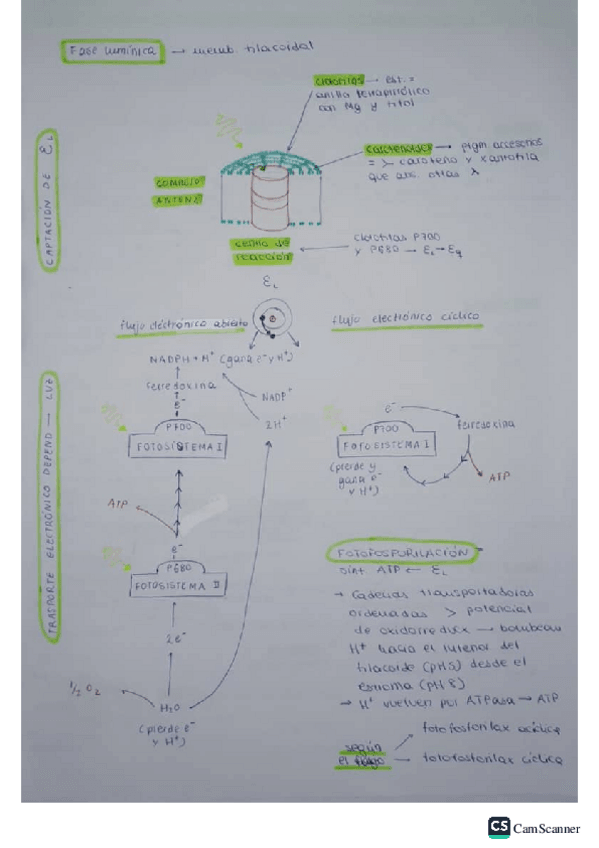 Fase lumínica → memb. tilacoidal
clorofilas → est. =
anillo tetrapirrólico
con Mg y fitol
carotenoides → pigm. accesorios
= > caroteno y xantofila
que abs. otras λ
COMPLEJO
ANTENA
centro de
reacción
clorofilas P700
y P680 → EL → Eq
CAPTACIÓN DE EL
EL
flujo electrónico abierto
flujo electrónico cíclico
NADPH + H⁺ (gana e⁻ y H⁺)
ferredoxina
e⁻
NADP⁺
2H⁺
P700
FOTOSISTEMA I
ATP
e⁻
P680
FOTOSISTEMA II
2e⁻
½ O₂
H₂O
(pierde e⁻
y H⁺)
TRASPORTE ELECTRÓNICO DEPEND → LUZ
e⁻
P700
FOTOSISTEMA I
ferredoxina
(pierde y
gana e⁻
y H⁺)
ATP
FOTOFOSFORILACIÓN
sínt ATP ← EL
→ Cadenas transportadoras
ordenadas > potencial
de oxidorredux → bombean
H⁺ hacia el interior del
tilacoide (pH 5) desde el
estroma (pH 8)
→ H⁺ vuelven por ATPasa → ATP
según
el flujo
fotofosforilax acíclica
fotofosforilax cíclica
CS CamScanner